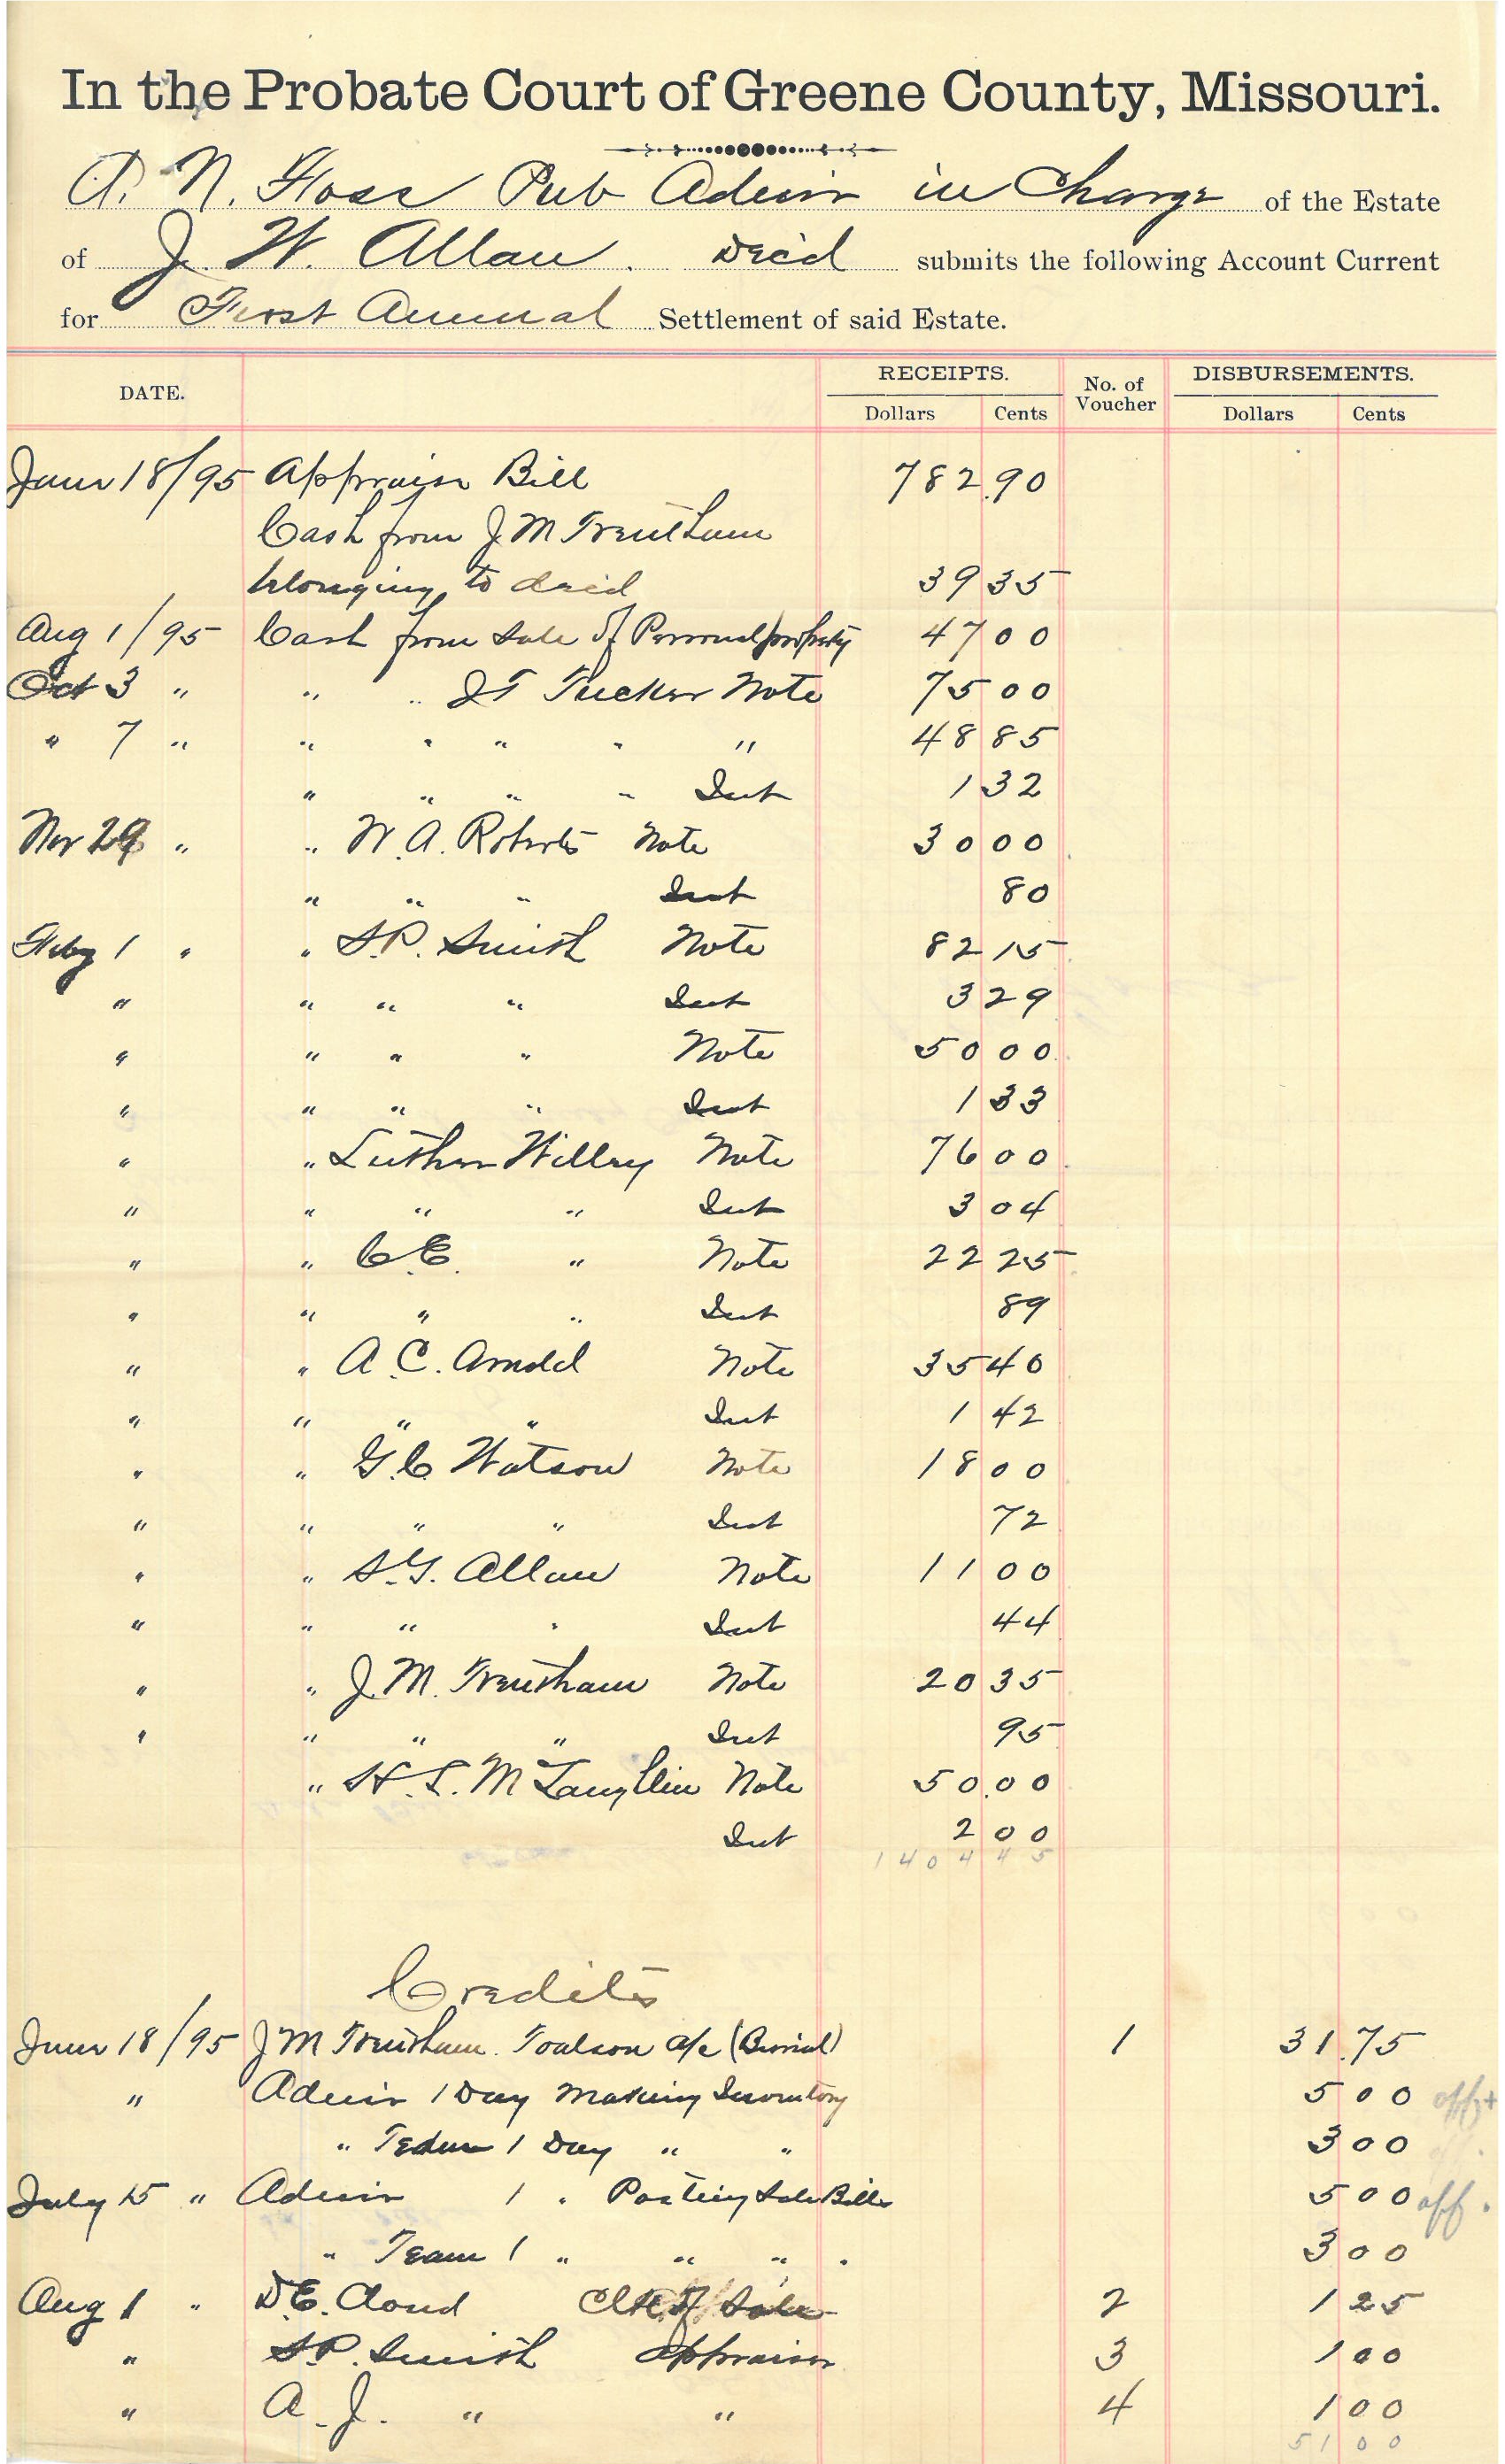 In the Probate Court of Greene County, Missouri.
A. N. Foss Pub Admin in Charge of the Estate
of J. W. Allan. Dec'd submits the following Account Current
for First Annual Settlement of said Estate.
DATE. RECEIPTS. No. of Voucher DISBURSEMENTS.
Dollars Cents Dollars Cents
June 18/95 Appraise Bill 782.90
Cash from J M Trentham
belonging to decd 39 35
Aug 1/95 Cash from Sale of Personal property 47 00
Oct 3 " " " J T Tucker Note 75 00
" 7 " " " " " " 48 85
" " " " Int 1 32
Nov 29 " " W. A. Roberts Note 30 00
" " " Int 80
Feby 1 " " S. P. Smith Note 82 15
" " " " Int 3 29
" " " " Note 50 00
" " " " Int 1 33
" " Luther Willey Note 76 00
" " " " Int 3 04
" " C. E. " Note 22 25
" " " " Int 89
" " A. C. Arnold Note 35 40
" " " " Int 1 42
" " G. C. Watson Note 18 00
" " " " Int 72
" " S. G. Allan Note 11 00
" " " " Int 44
" " J. M. Trentham Note 20 35
" " " " Int 95
" H. L. McLaughlin Note 50.00
Int 2 00
1404 45
Credits
June 18/95 J M Trentham. Toalson a/c (Burial) 1 31.75
" Admin 1 Day Making Inventory 5 00 off
" Team 1 Day " " 3 00
July 15 " Admin 1 " Posting Sale Bills 5 00 off.
" Team 1 " " " " 3 00
Aug 1 " D. E. Cloud Clk of Sale 2 1 25
" S. P. Smith Appraiser 3 1 00
" A. J. " " 4 1 00
51 00